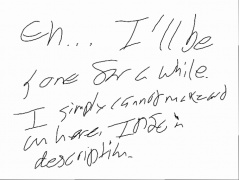 Eh... I'll be
gone for a while.
I simply cannot
on here. I
description.